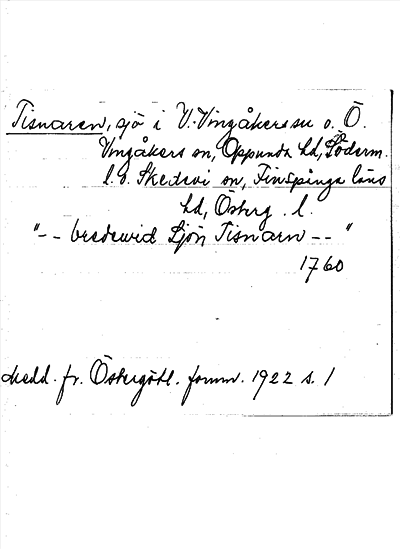 Tisnaren, sjö i V. Vingåkers sn o. Ö.
Vingåkers sn, Oppunda hd, Söderm.
l. o. Skedevi sn, Finspånga läns
hd, Österg. l.
"-- bredewid Sjön Tisnarn --"
1760
Medd. fr. Östergötl. fornm. 1922 s. 1